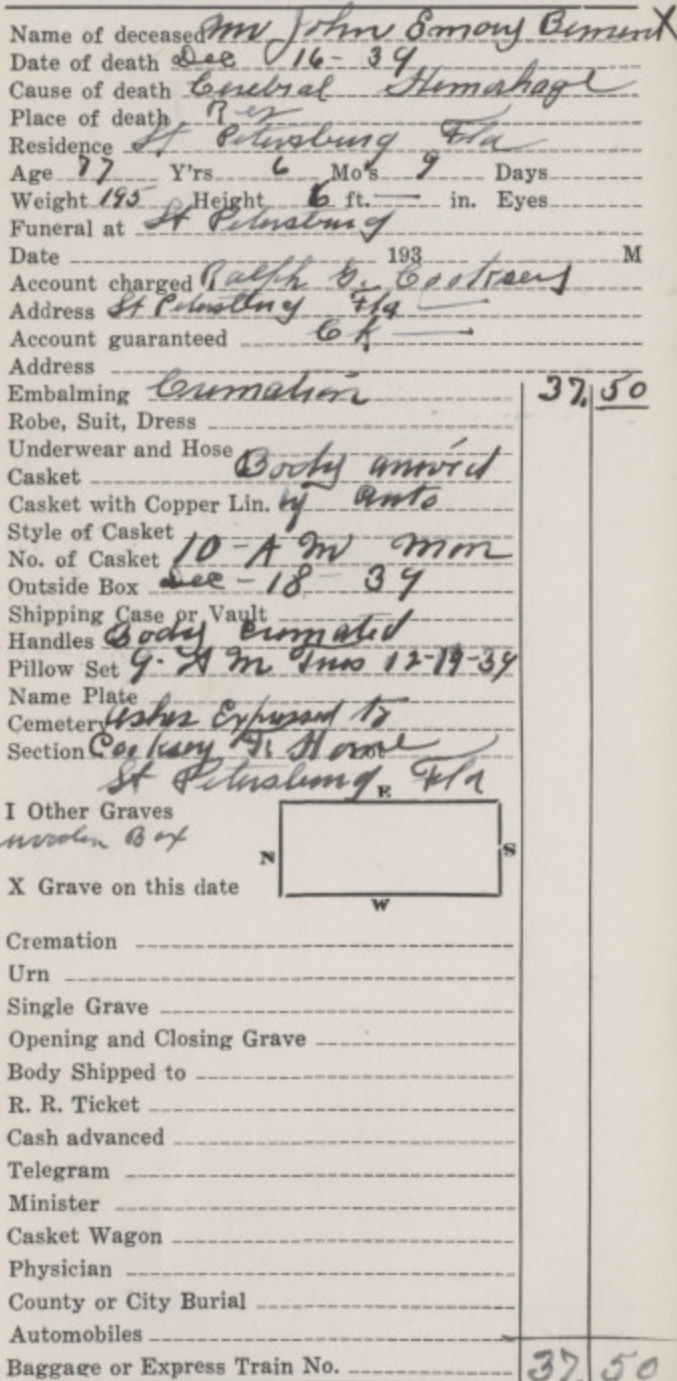 Name of deceased Mr John Emory Bement X
Date of death Dec 16 - 39
Cause of death Cerebral Hemorhage
Place of death
Residence St Petersburg Fla
Age 77 Y'rs 6 Mo's 9 Days
Weight 195 Height 6 ft. — in. Eyes
Funeral at St Petersburg
Date 193 M
Account charged Ralph G. Cooksey
Address St Petersburg Fla —
Account guaranteed Ok —
Address
Embalming Cremation 37. 50
Robe, Suit, Dress
Underwear and Hose
Casket Body arrived
Casket with Copper Lin. by Auto
Style of Casket
No. of Casket 10 - A M Mon
Outside Box Dec - 18 39
Shipping Case or Vault
Handles Body Cremated
Pillow Set 9 - A M Tues 12-19-39
Name Plate
Cemetery Ashes Expressed to
Section Cooksey F. Home
St Petersburg Fla
E
I Other Graves
wooden Box
N S
X Grave on this date
W
Cremation
Urn
Single Grave
Opening and Closing Grave
Body Shipped to
R. R. Ticket
Cash advanced
Telegram
Minister
Casket Wagon
Physician
County or City Burial
Automobiles
Baggage or Express Train No. 37 50